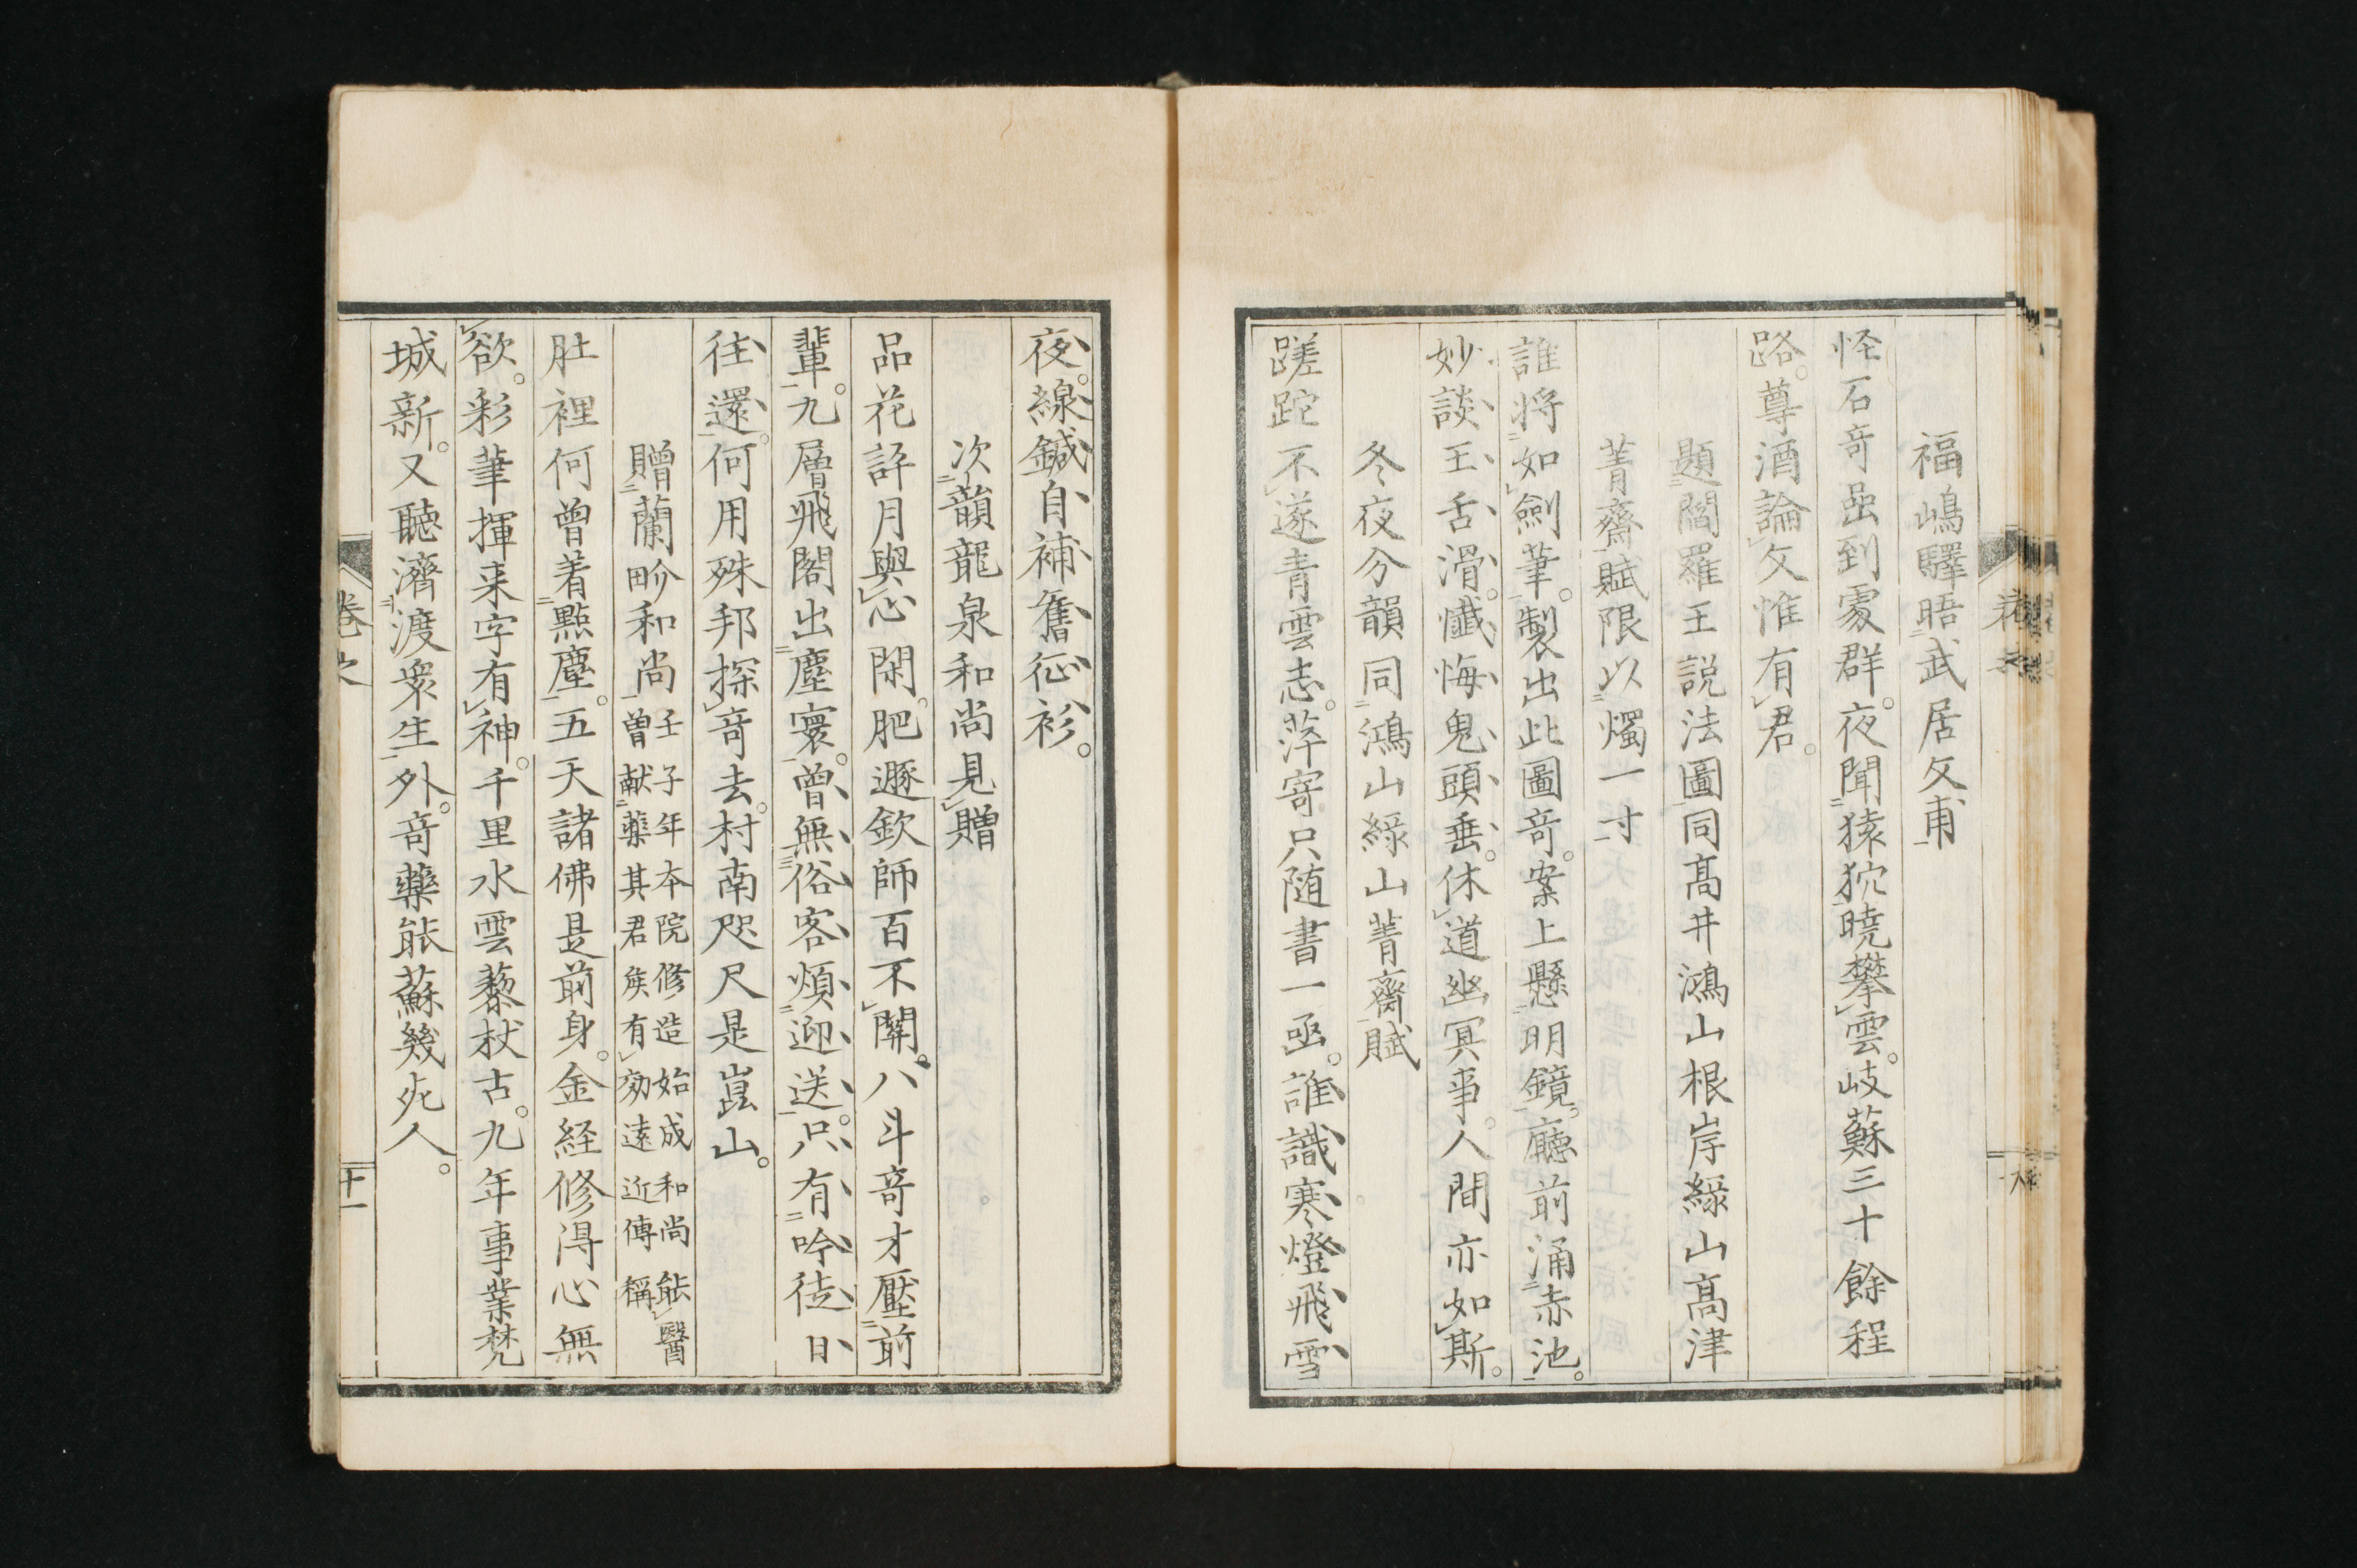 福嶋驛晤武居文甫
怪石奇嵒到處群。夜聞猿狖曉攀雲。岐蘇三十餘程
路。尊酒論文惟有君。
題閻羅王説法圖同高井鴻山根岸緑山高津
菁齋賦限以燭一寸
誰將如劍筆。製出此圖奇。案上懸明鏡。廳前涌赤池。
妙談王舌滑。懺悔鬼頭垂。休道幽冥事。人間亦如斯。
冬夜分韻同鴻山緑山菁齋賦
蹉跎不遂青雲志。萍寄只随書一函。誰識寒燈飛雪
夜。線鍼自補舊征衫。
次韻龍泉和尚見贈
品花評月與心閑。肥遯欽師百不關。八斗奇才壓前
輩。九層飛閣出塵寰。曾無俗客煩迎送。只有吟徒日
往還。何用殊邦探奇去。村南咫尺是崑山。
贈蘭畍和尚
壬子年本院修造始成和尚能醫
曾献藥其君侯有効遠近傳稱
肚裡何曾着點塵。五天諸佛是前身。金経修得心無
欲。彩筆揮来字有神。千里水雲藜杖古。九年事業梵
城新。又聽濟渡衆生外。奇藥能蘇幾死人。
卷之
十一